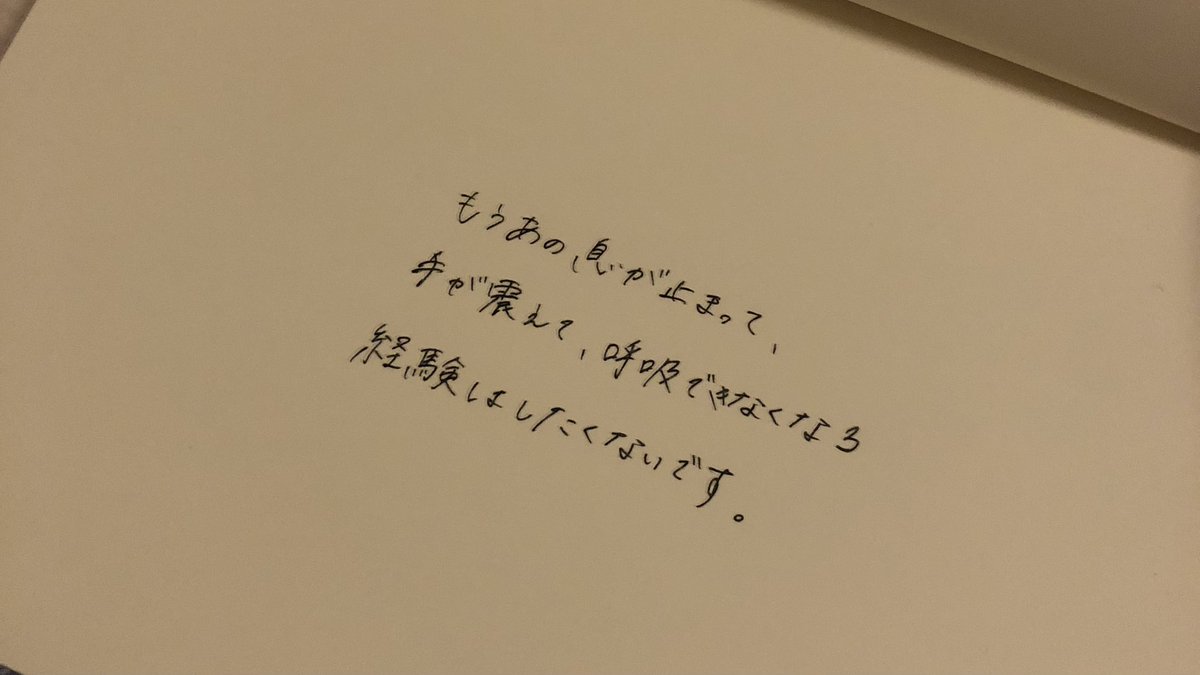 もうあの息が止まって、
手が震えて、呼吸できなくなる
経験はしたくないです。